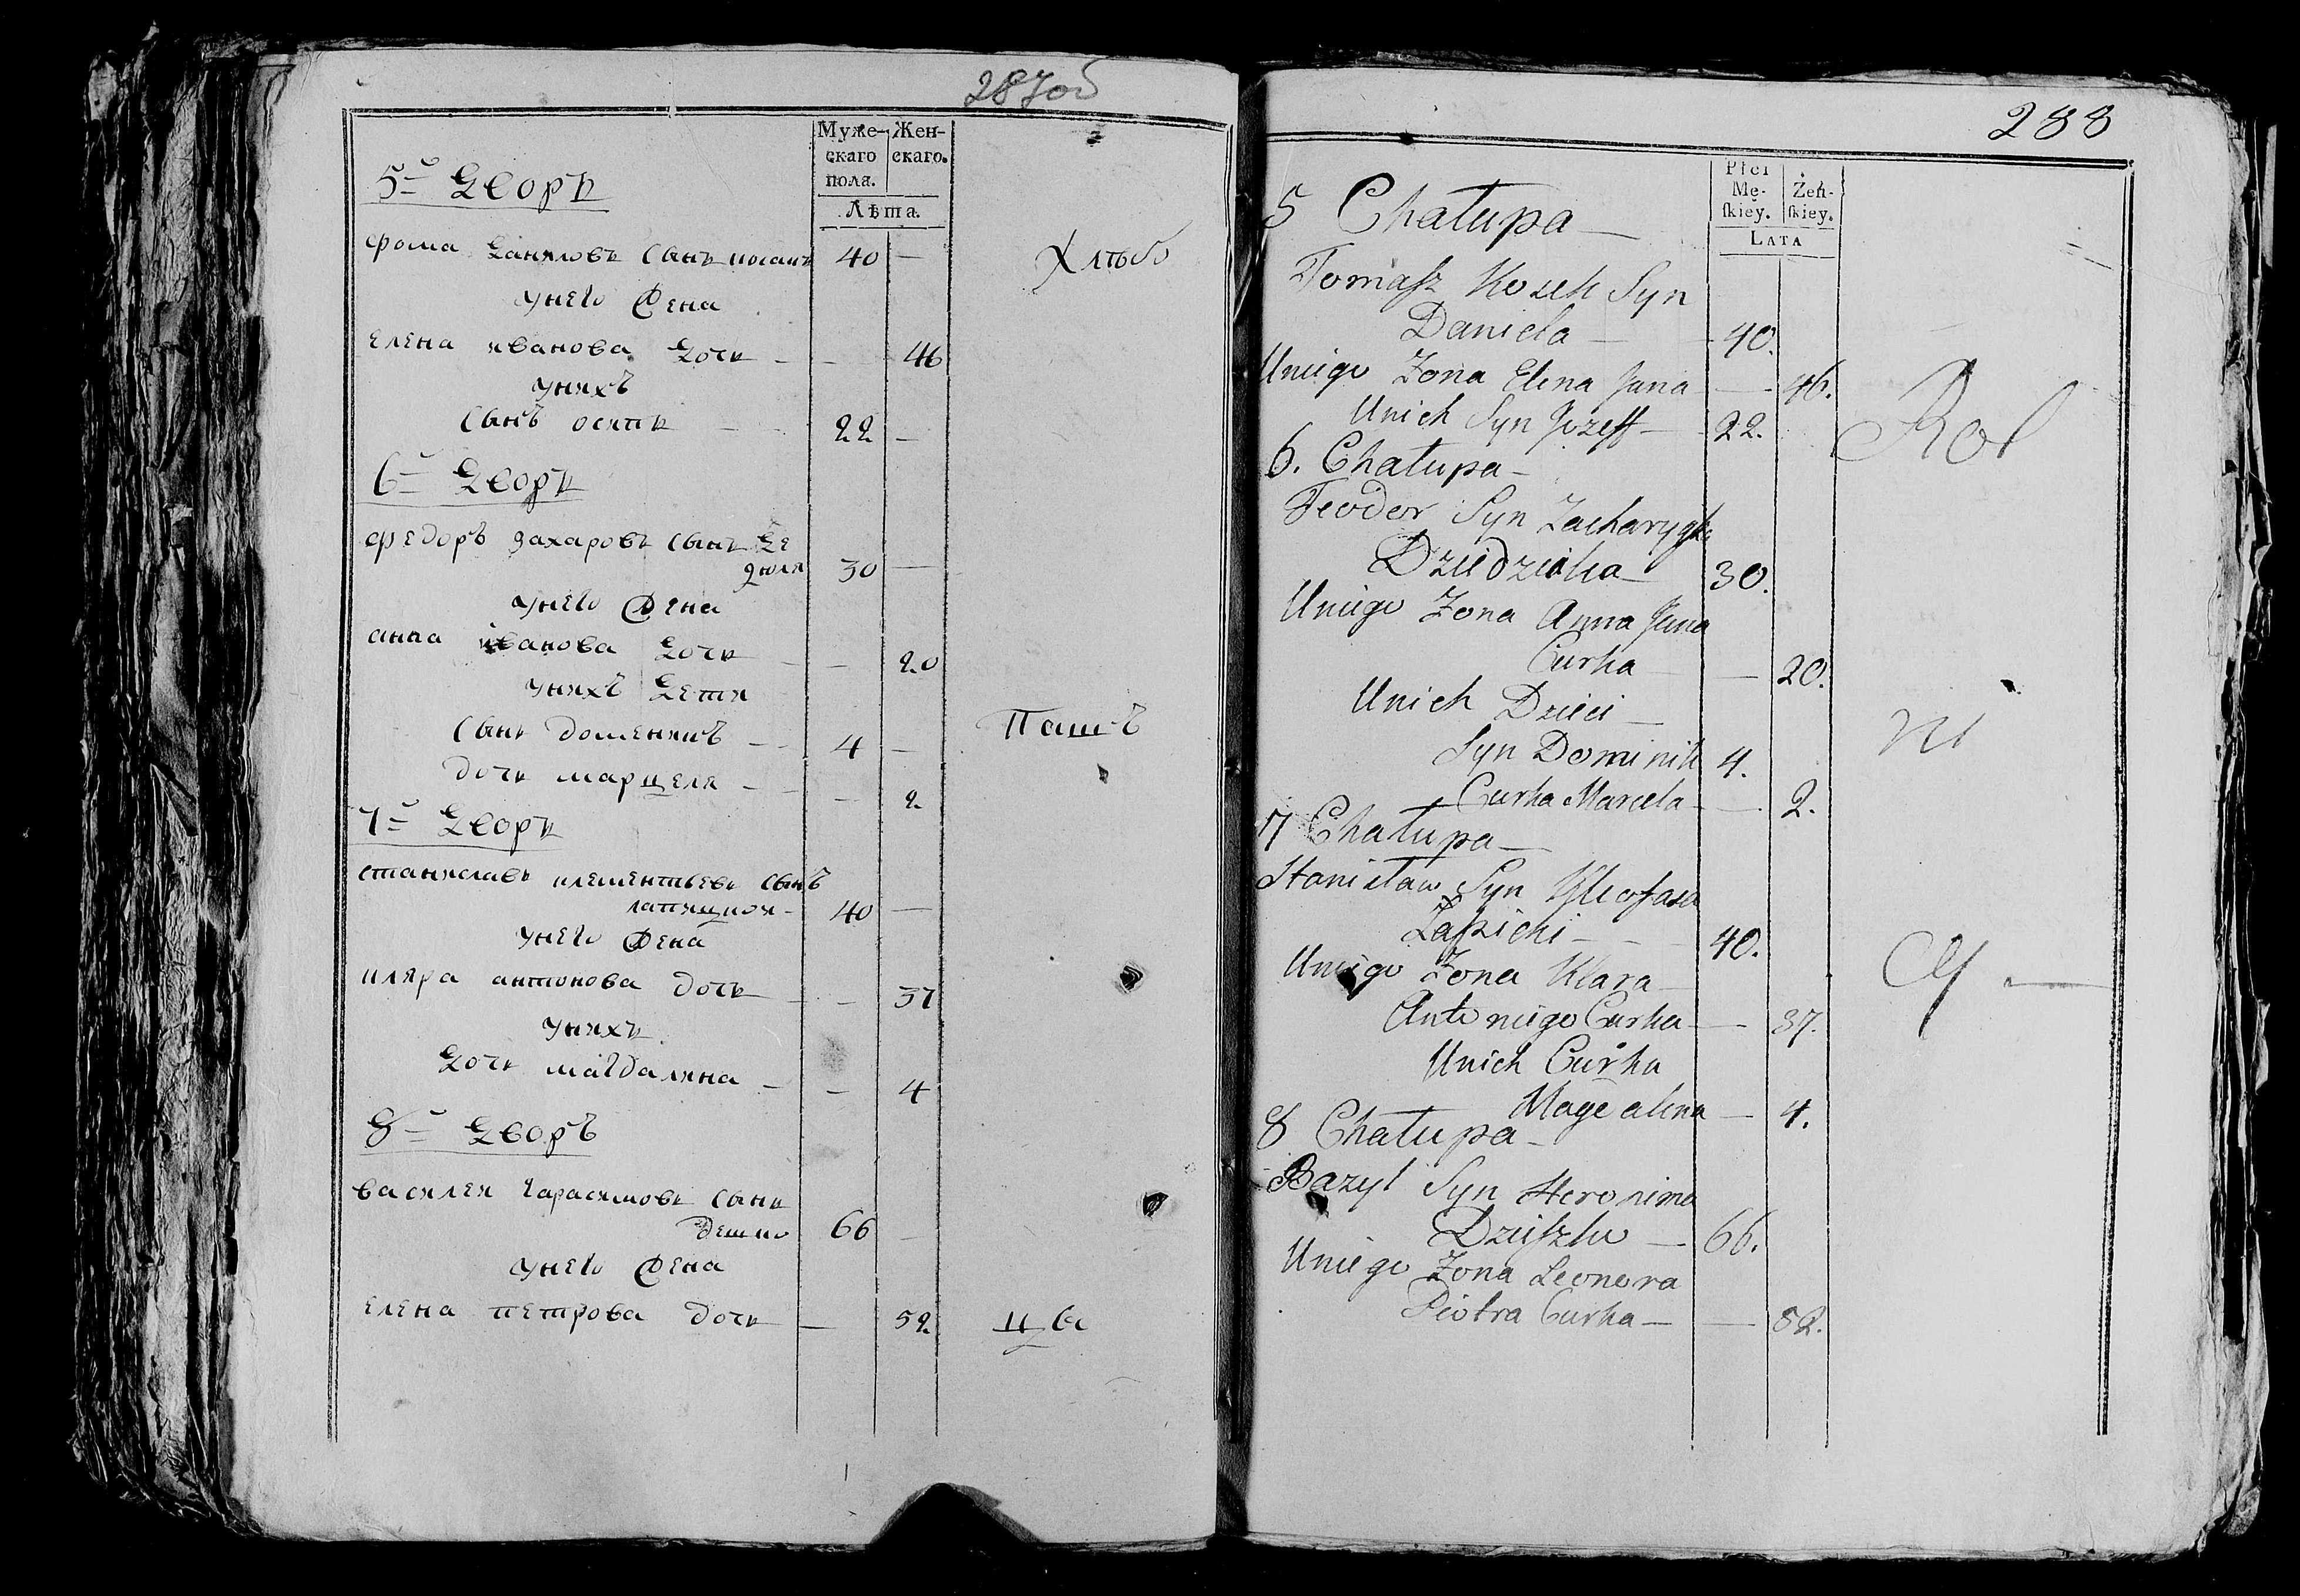 287об
Муже-
скаго
пола.
Жен-
скаго.
Лѣта.
5й Дворъ
фома Даниловъ сынъ косакъ 40 —
Хлѣбо
унего жена
елена иванова дочь — — 46
унихъ
сынъ осипъ — — 22 —
6й Дворъ
федоръ захаровъ сынъ де
дюля 30 —
унего жена
анна иванова дочь — — 20
унихъ дети
сынъ доменикъ — — 4 —
Пашъ
дочь марцеля — — — 2
7й Дворъ
станиславъ клементьевъ сынъ
лапицкой — 40 —
унего жена
кляра антонова дочь — — 37
унихъ
дочь магдалина — — 4
8й Дворъ
василей гарасимовъ сынъ
дешко 66 —
унего жена
елена петрова дочь — 52
цы
288
Płci
Mę-
skiey.
Żeń-
skiey.
LATA
5 Chałupa —
Tomasz Kozek Syn
Daniela — 40.
Uniego Żona Elena Jana — — 46.
Unich Syn Jozeff — 22.
Rol
6. Chałupa —
Teodor Syn Zacharyasza
Dziedziulia — 30.
Uniego Żona Anna Jana
Curka — — 20.
Unich Dzieci —
Syn Dominik 4.
ni
Curka Marcela — — 2.
7 Chałupa —
Stanisław Syn Kleofasa
Łapicki — — 40.
Uniego Żona Klara —
cy —
Antoniego Curka — — 37.
Unich Curka
Magdalena — 4.
8 Chałupa —
Bazyl Syn Heronima
Dzieszko — 66.
Uniego Żona Leonora
Piotra Curka — — 52.